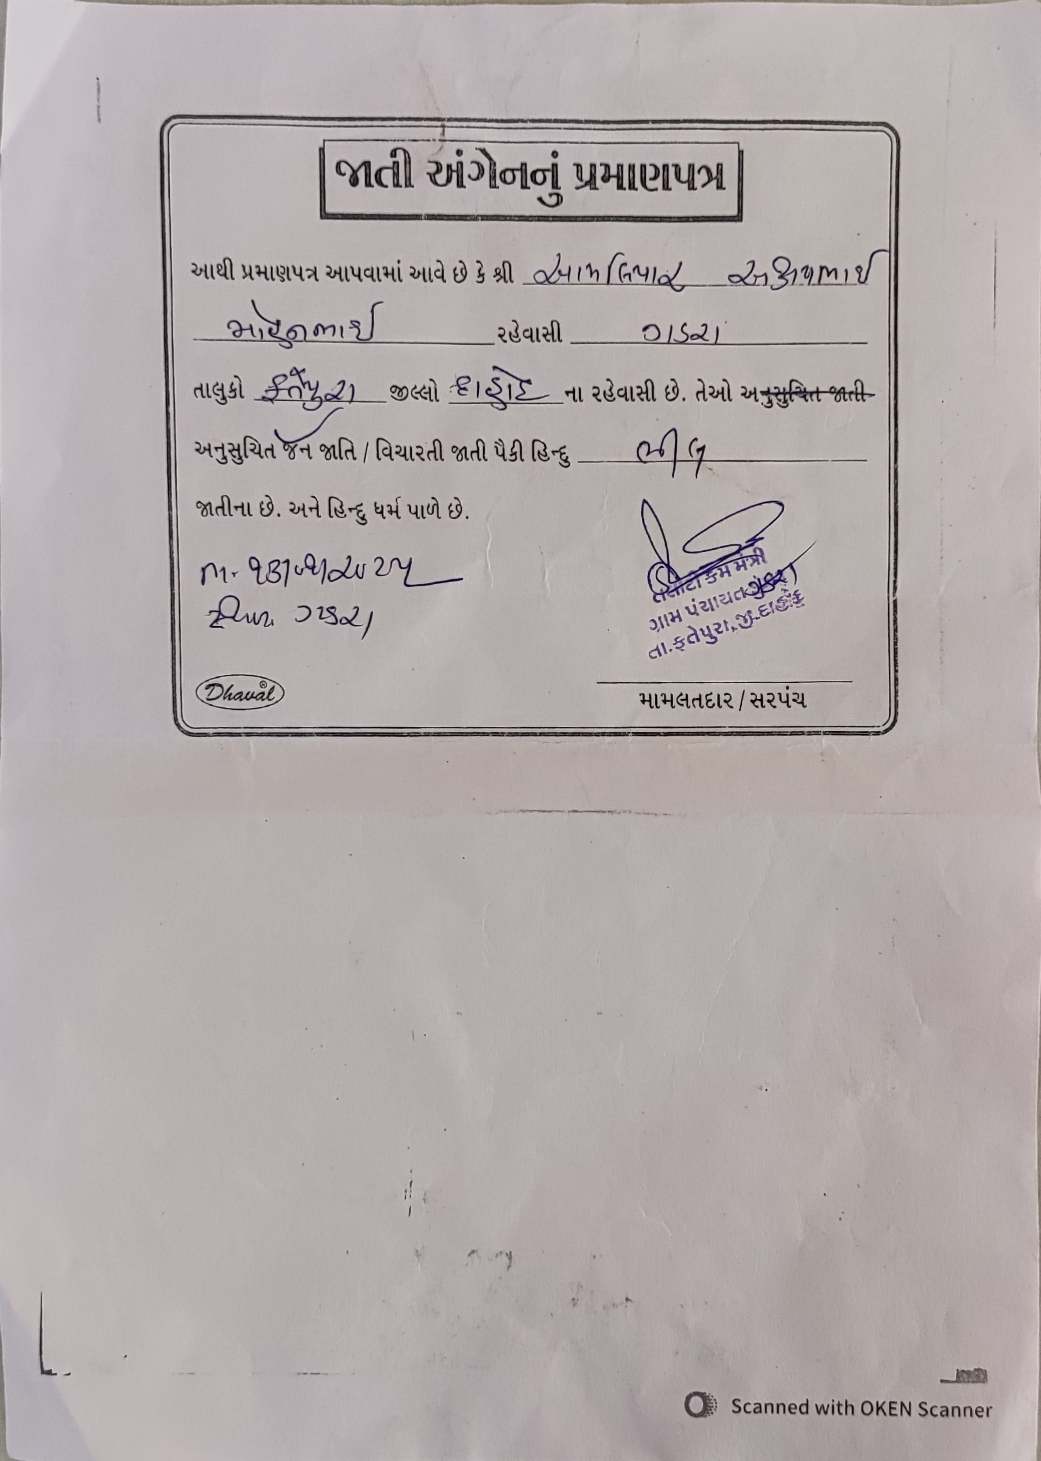 જાતી અંગેનનું પ્રમાણપત્ર
આથી પ્રમાણપત્ર આપવામાં આવે છે કે શ્રી આમલિયાર અક્ષયભાઈ
મોહનભાઈ રહેવાસી ગડરા
તાલુકો ફતેપુરા જીલ્લો દાહોદ ના રહેવાસી છે. તેઓ અનુસુચિત જાતી
અનુસુચિત જન જાતિ / વિચારતી જાતી પૈકી હિન્દુ ભીલ
જાતીના છે. અને હિન્દુ ધર્મ પાળે છે.
તા. ૧૩/૦૧/૨૦૨૫
ગડરા
તલાટી કમ મંત્રી
ગ્રામ પંચાયત
તા.ફતેપુરા, જી.દાહોદ
Dhaval®
મામલતદાર / સરપંચ
Scanned with OKEN Scanner